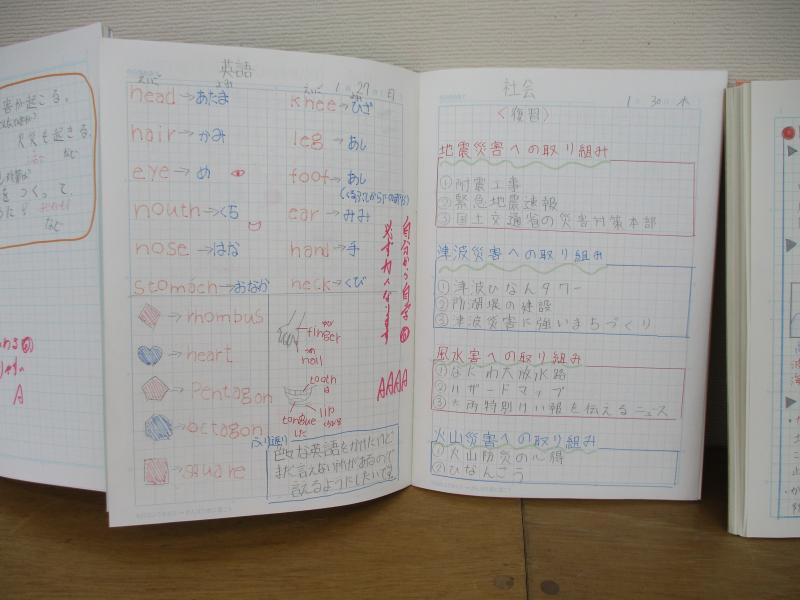 害が起こる。
火災も起きる。
など
をつくって、
など
A
英語
えいご
1 27 日
head→あたま
hair→かみ
eye→め
mouth→くち
nose→はな
stomach→おなか
knee→ひざ
leg→あし
foot→あし
ear→みみ
hand→手
neck→くび
→rhombus
→heart
→Pentagon
→octagon
→square
finger
nail
tooth
歯
lip
tongue
自分から自学
必ず力になります
AAAA
ふり返り
色々な英語をかけたけど
まだ言えない所があるので
言えるようにしたいです。
社会
1 30 木
〈復習〉
地震災害への取り組み
①耐震工事
②緊急地震速報
③国土交通省の災害対策本部
津波災害への取り組み
①津波ひなんタワー
②防潮堤の建設
③津波災害に強いまちづくり
風水害への取り組み
①なにわ大放水路
②ハザードマップ
③大雨特別けい報を伝えるニュース
火山災害への取り組み
①火山防災の心得
②ひなんごう